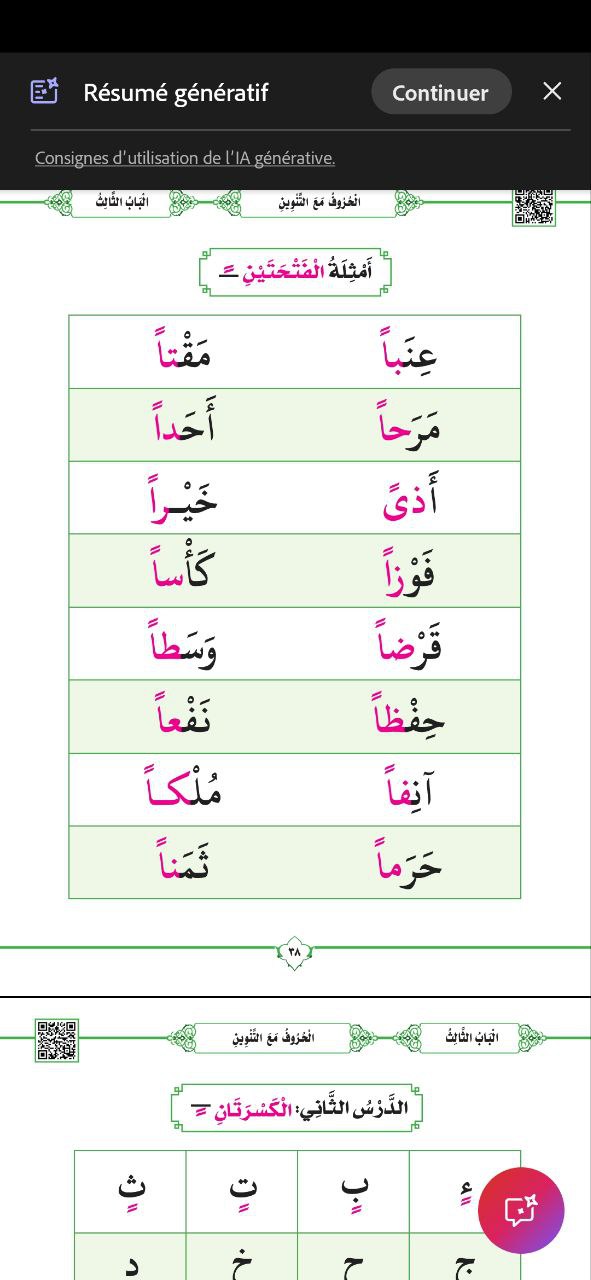 Résumé génératif
Continuer
Consignes d’utilisation de l’IA générative.
الْحُرُوفُ مَعَ التَّنْوِينِ الْبَابُ الثَّالِثُ
أَمْثِلَةُ الْفَتْحَتَيْنِ ـً
عِنَباً مَقْتاً
مَرَحاً أَحَداً
أَذىً خَيْـراً
فَوْزاً كَأْساً
قَرْضاً وَسَطاً
حِفْظاً نَفْعاً
آنِفاً مُلْكـاً
حَرَماً ثَمَناً
٣٨
الْبَابُ الثَّالِثُ الْحُرُوفُ مَعَ التَّنْوِينِ
الدَّرْسُ الثَّانِي: الْكَسْرَتَانِ ـٍ
ءٍ بٍ تٍ ثٍ
ج ح خ د